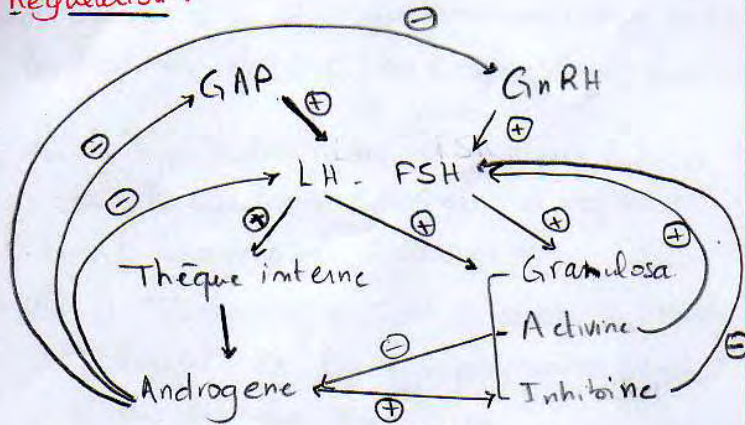 Régulation :
⊖
GAP ⊕ GnRH
⊖ ⊕
⊖ LH - FSH
⊕ ⊕ ⊕ ⊕
Thèque interne Granulosa
⊖ Activine ⊖
Androgene ⊕ Inhibine